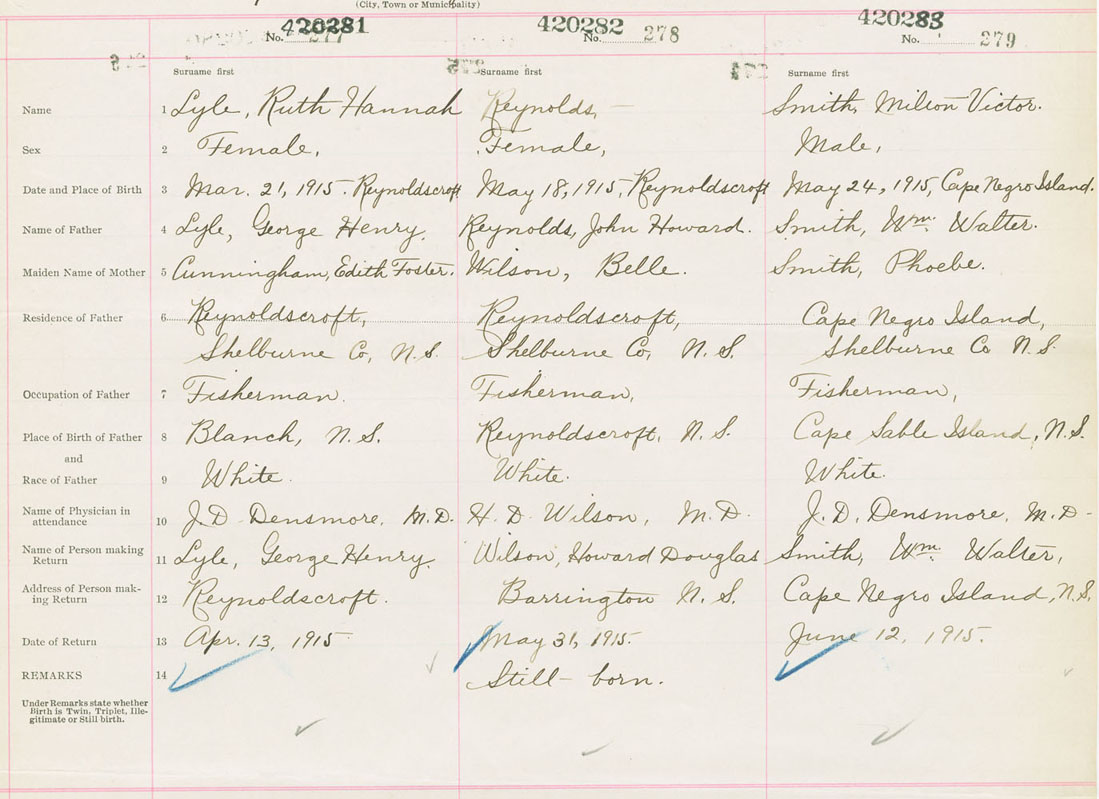 (City, Town or Municipality)
420281 420282 420283
No. 277 No. 278 No. 279
Surname first Surname first Surname first
Name 1 Lyle, Ruth Hannah Reynolds, — Smith, Milton Victor.
Sex 2 Female, Female, Male,
Date and Place of Birth 3 Mar. 21, 1915. Reynoldscroft May 18, 1915, Reynoldscroft May 24, 1915, Cape Negro Island.
Name of Father 4 Lyle, George Henry. Reynolds, John Howard. Smith, Wm. Walter.
Maiden Name of Mother 5 Cunningham, Edith Foster. Wilson, Belle. Smith, Phoebe.
Residence of Father 6 Reynoldscroft, Reynoldscroft, Cape Negro Island,
Shelburne Co, N.S. Shelburne Co, N.S. Shelburne Co N.S.
Occupation of Father 7 Fisherman. Fisherman, Fisherman,
Place of Birth of Father 8 Blanch, N.S. Reynoldscroft, N.S. Cape Sable Island, N.S.
and
Race of Father 9 White. White. White.
Name of Physician in
attendance 10 J. D. Densmore, M.D. H. D. Wilson, M.D. J. D. Densmore, M.D.
Name of Person making
Return 11 Lyle, George Henry. Wilson, Howard Douglas Smith, Wm. Walter,
Address of Person mak-
ing Return 12 Reynoldscroft. Barrington N.S. Cape Negro Island, N.S.
Date of Return 13 Apr. 13, 1915 May 31, 1915. June 12, 1915.
REMARKS 14 Still-born.
Under Remarks state whether
Birth is Twin, Triplet, Ille-
gitimate or Still birth.